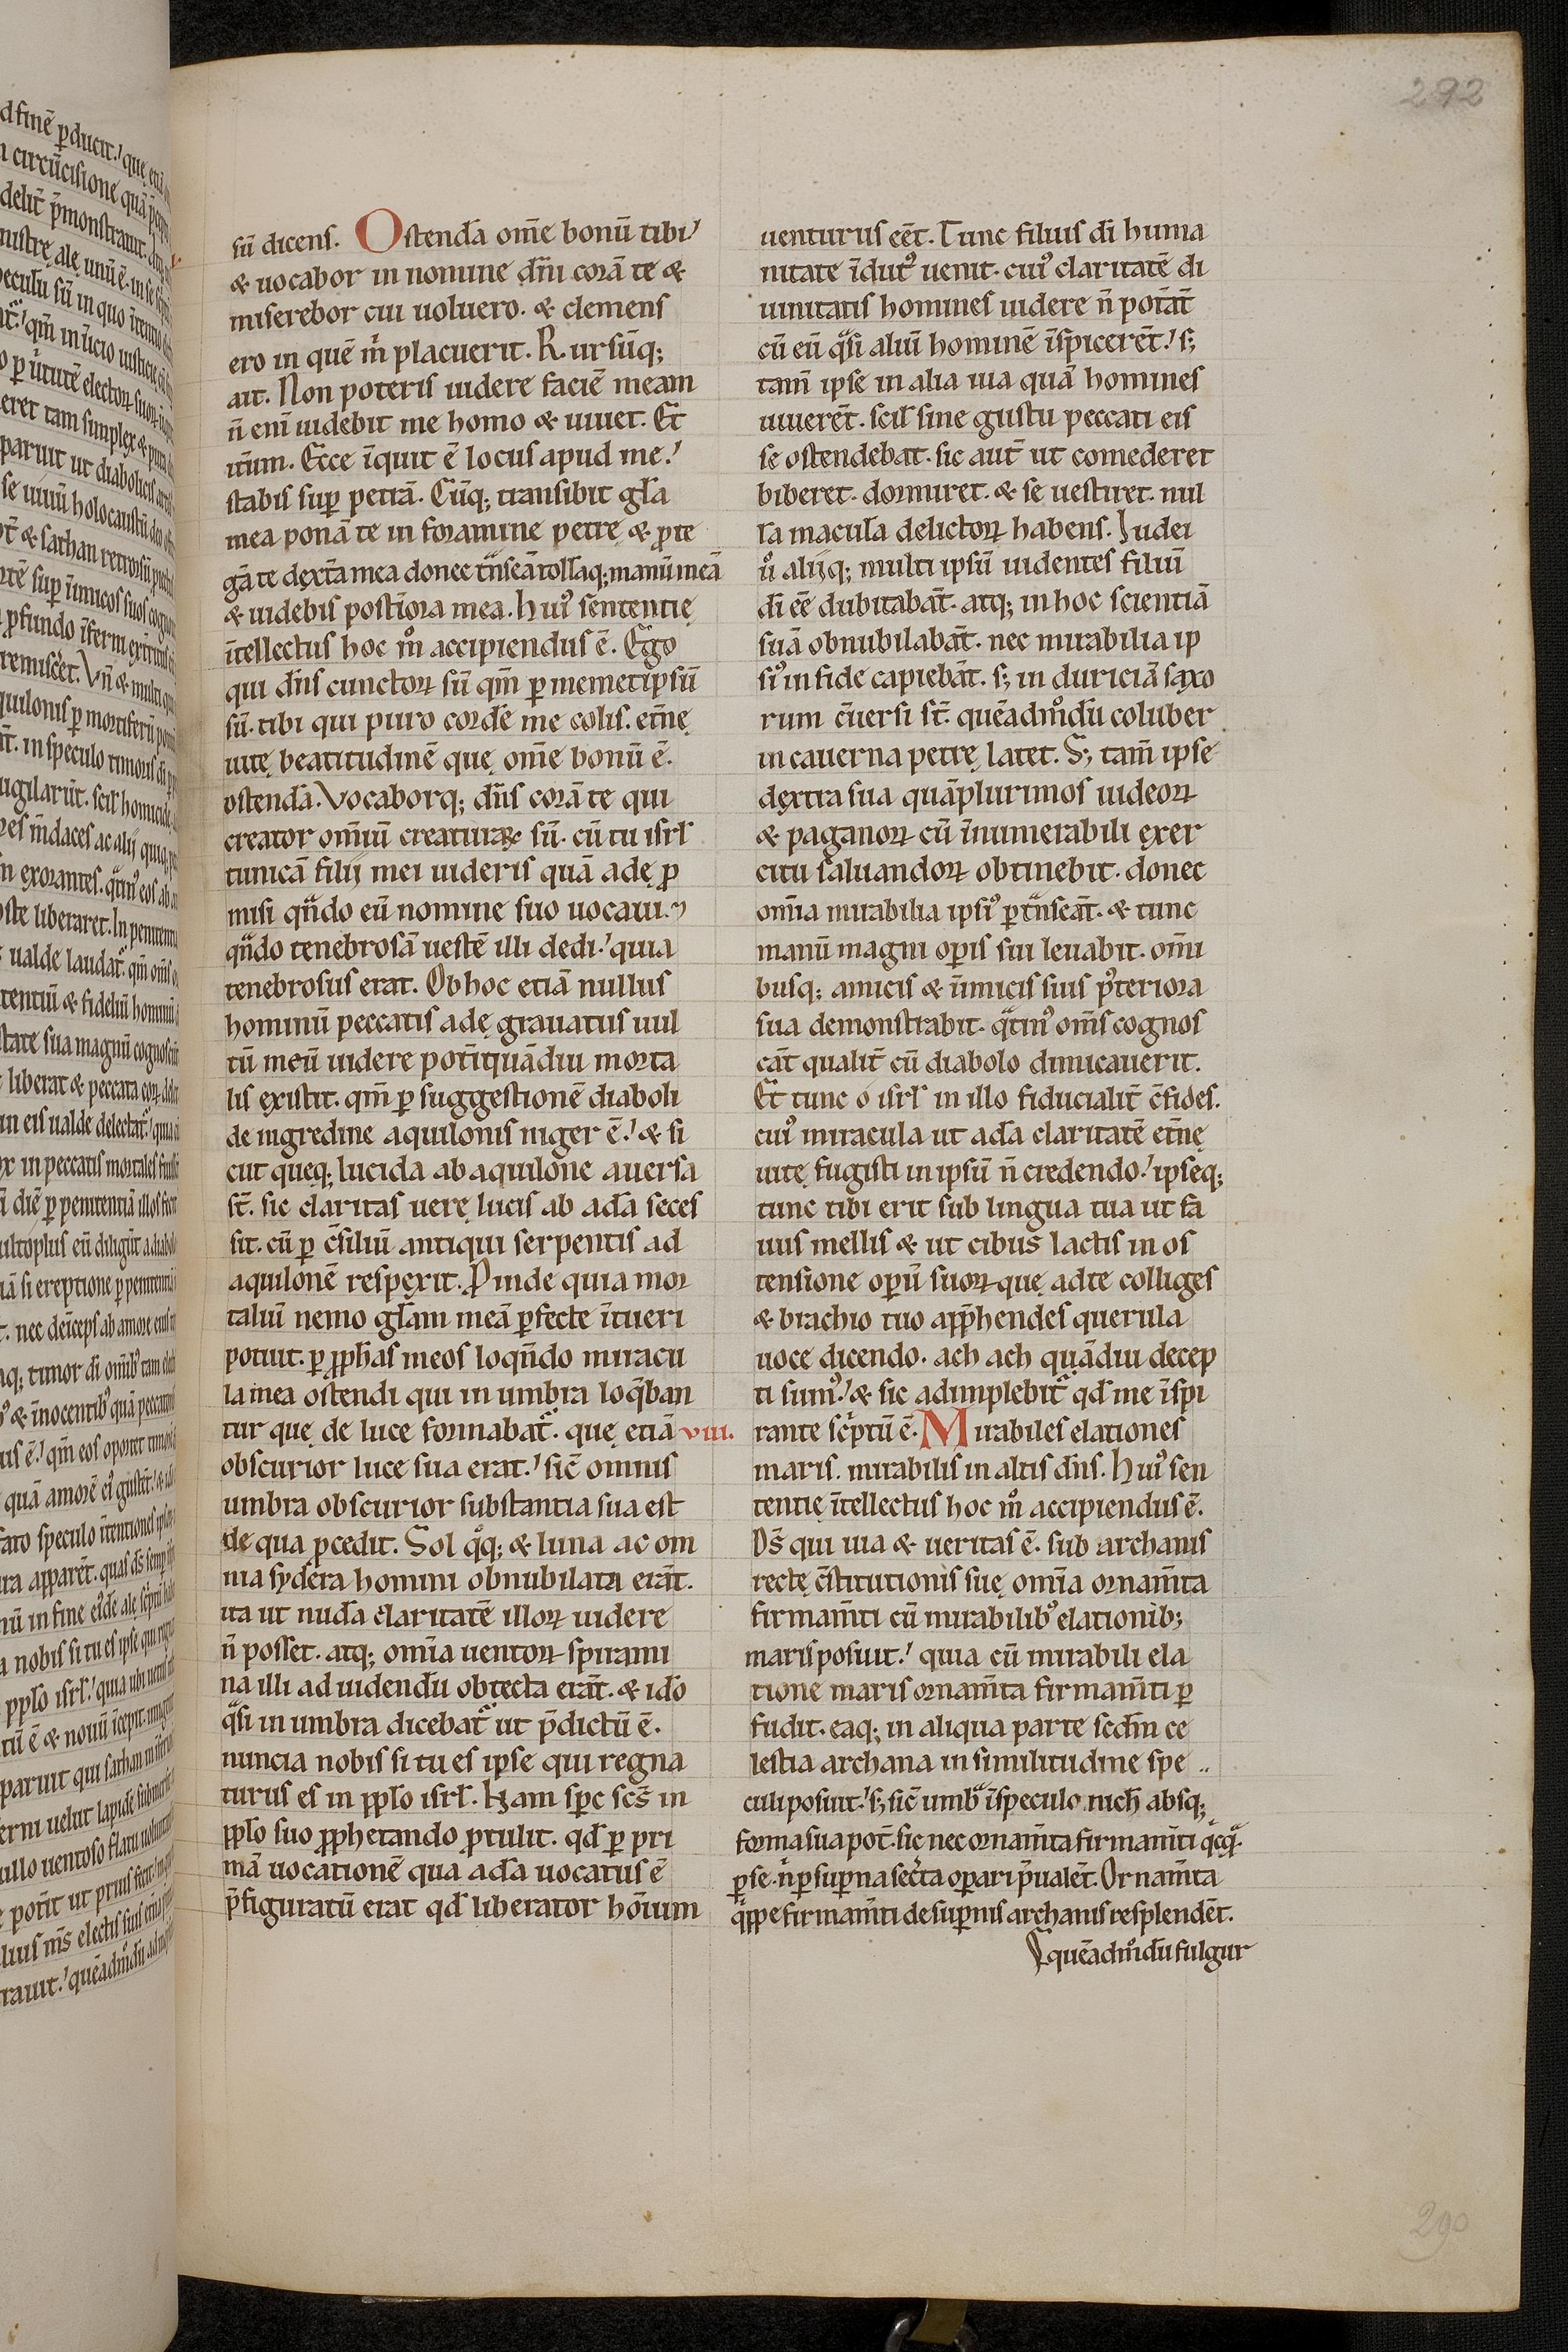 292
sū dicens. Ostendā om̄e bonū tibi
& uocabor in nomine dn̄i corā te &
miserebor cui uoluero. & clemens
ero in quē m̄ placuerit. Rursūq;
ait. Non poteris uidere faciē meam
n̄ eni uidebit me homo & uiuet. Et
itm̄. Ecce īquit ē locus apud me.
stabis sup petrā. Cūq; transibit gła
mea ponā te in foramine petrę & p̄te
gā te dext̄a mea donec tn̄seā tollāq; manū meā
& uidebis post̄iora mea. hui᷒ sententię
ītellectus hoc mͦ accipiendus ē. Ego
qui dn̄s cunctoꝝ sū qm̄ ꝑ memetipsū
sū. tibi qui puro corde me colis. et̄nę
uitę beatitudinē quę om̄e bonū ē.
ostendā. Vocaborq; dn̄s corā te qui
creator om̄iū creaturaꝝ sū. cū tu isrł
tunicā filij mei uideris quā adę ꝓ
misi qn̄do eū nomine suo uocaui.
qn̄do tenebrosā uestē illi dedi. quia
tenebrosus erat. Ob hoc etiā nullus
hominū peccatis adę grauatus uul
tū meū uidere pot̄it quādiu morta
lis existit. qm̄ ꝑ suggestionē diaboli
de nigredine aquilonis niger ē. & si
cut queq; lucida ab aquilone auersa
st̄. sic claritas uerę lucis ab adā seces
sit. cū ꝑ c̄siliū antiqui serpentis ad
aquilonē respexit. Pinde quia mor
taliū nemo głam meā ꝑfecte ītueri
potuit. ꝑ ꝓphas meos loqn̄do miracu
la mea ostendi qui in umbra loq̄ban
tur quę de luce formabat̄. quę etiā viii.
obscurior luce sua erat. sic̄ omnis
umbra obscurior substantia sua est
de qua ꝓcedit. Sol qͦq; & luna ac om
nia sydera homini obnubilata erāt.
ita ut nudā claritatē illoꝝ uidere
n̄ posset. atq; om̄ia uentoꝝ spirami
na illi ad uidendū obtecta erāt. & idō
q̄si in umbra dicebat̄ ut p̄dictū ē.
nuncia nobis si tu es ipse qui regna
turus es in ppło isrł. Nam spc sc̄s in
ppło suo ꝓphetando ꝓtulit. qd̄ ꝑ pri
mā uocationē qua adā uocatus ē
p̄figuratū erat qd̄ liberator hoīum
uenturus eēt. Tunc filius di huma
nitate īdut᷒ uenit. cui᷒ claritatē di
uinitatis homines uidere n̄ potāt
cū eū q̄si aliū hominē īspicerēt. s;
tam̄ ipse in alia uia quā homines
uiuerēt. scił sine gustu peccati eis
se ostendebat. sic aut̄ ut comederet
biberet. dormiret. & se uestiret. nul
la macula delictoꝝ habens. Iudei
uͦ alijq; multi ipsū uidentes filiū
di eē dubitabāt. atq; in hoc scientiā
suā obnubilabāt. nec mirabilia ip
si᷒ in fide capiebāt. s; in duriciā saxo
rum c̄uersi st̄. quēadmͦdū coluber
in cauerna petrę latet. S; tam̄ ipse
dextra sua quāplurimos iudeoꝝ
& paganoꝝ cū īnumerabili exer
citu saluandoꝝ obtinebit. donec
om̄ia mirabilia ipsi᷒ ꝑtn̄seāt. & tunc
manū magni opis sui leuabit. om̄i
busq; amicis & inimicis suis p᷒teriora
sua demonstrabit. q̄tin᷒ om̄s cognos
cāt qualit̄ cū diabolo dimicauerit.
Et tunc o isrł in illo fiducialit̄ c̄fides.
cui᷒ miracula ut adā claritatē et̄nę
uitę fugisti in ipsū n̄ credendo. ipseq;
tunc tibi erit sub lingua tua ut fa
uus mellis & ut cibus lactis in os
tensione opū suoꝝ quę ad te colliges
& brachio tuo app̄hendes querula
uoce dicendo. ach ach quādiu decep
ti sum᷒. & sic adimplebit̄ qd̄ me īspi
rante scͥptū ē. Mirabiles elationes
maris. mirabilis in altis dn̄s. hui᷒ sen
tentię ītellectus hoc mͦ accipiendus ē.
Ds̄ qui uia & ueritas ē. sub archanis
rectę c̄stitutionis suę om̄ia ornam̄ta
firmam̄ti cū mirabilib᷒ elationib;
maris posuit. quia cū mirabili ela
tione maris ornam̄ta firmam̄ti ꝑ
fudit. eaq; in aliqua parte sedm̄ ce
lestia archana in similitudine spe
culi posuit. s; sic̄ umbͣ ī speculo nich̄ absq;
forma sua pot̄. sic nec ornam̄ta firmam̄ti q̄cq̄
ꝑ se. nͥ ꝑ supna secͥta opari p̄ualēt. Ornam̄ta
q̄ppe firmam̄ti de supnis archanis resplendēt.
quēadmͦdū fulgur
290